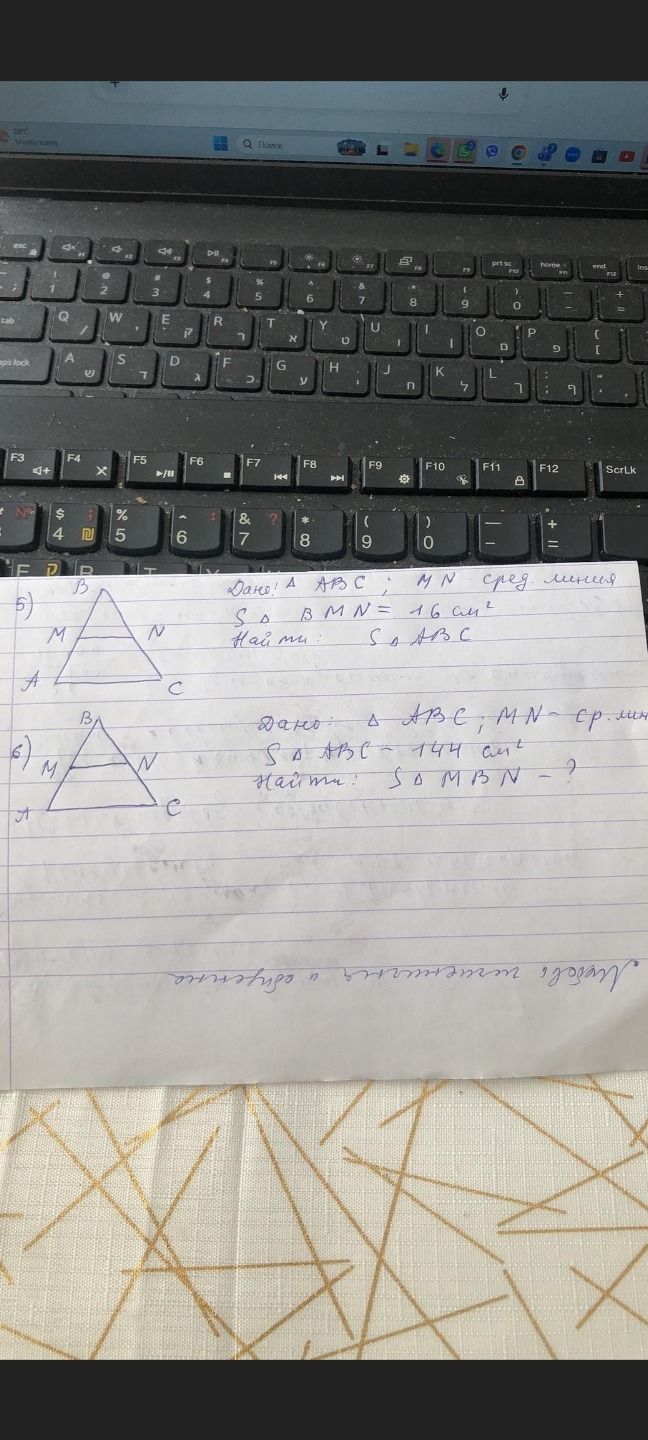 Поиск
esc F1 F2 F3 F4 F5 F6 F7 F8 F9 prt sc F10 home F11 end F12 ins
! 1 @ 2 # 3 $ 4 % 5 ^ 6 & 7 * 8 ( 9 ) 0 - + =
tab Q / W ' E ק R ר T א Y ט U ו I ן O ם P פ { [
caps lock A ש S ד D ג F כ G ע H י J ח K ל L ך : ; ף " ,
F3 F4 F5 F6 F7 F8 F9 F10 F11 F12 ScrLk
$ ; 4 ₪ % 5 ^ : 6 & ? 7 * 8 ( 9 ) 0 — + =
5) B Дано: △ ABC ; MN сред. линия
S △ BMN = 16 см²
M N Найти: S △ ABC
A C
6) B Дано: △ ABC ; MN - ср. лин
S △ ABC - 144 см²
M N Найти: S △ MBN - ?
A C
Любовь